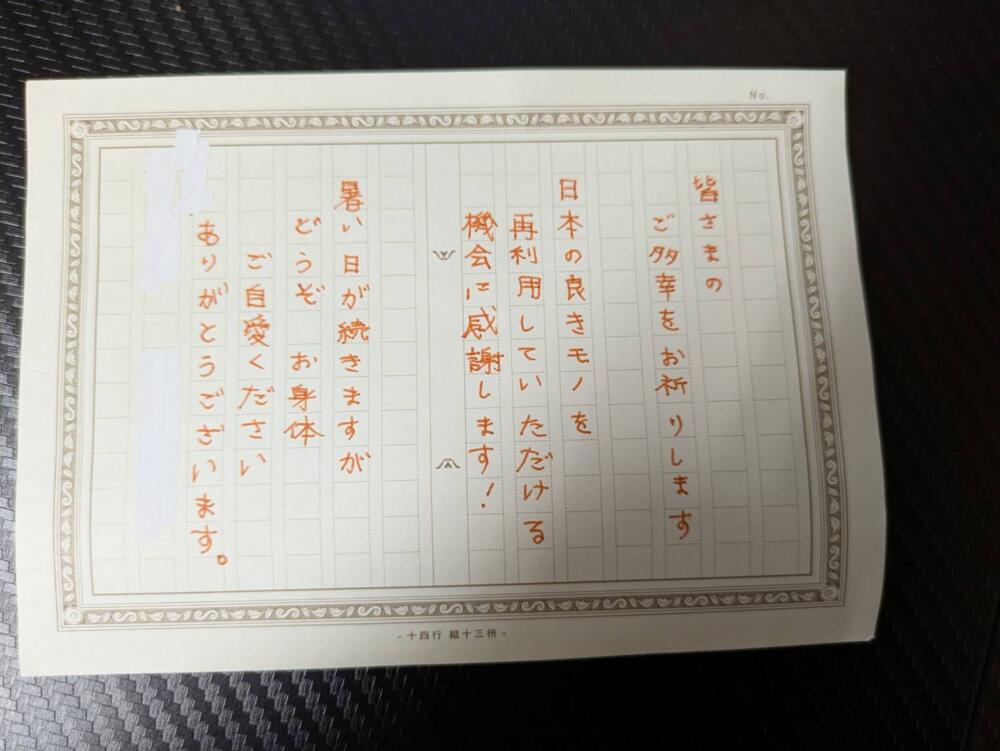 No.
皆さまの
ご多幸をお祈りします
日本の良きモノを
再利用していただける
機会に感謝します！
暑い日が続きますが
どうぞ お身体
ご自愛ください
ありがとうございます。
- 十四行 縦十三枡 -